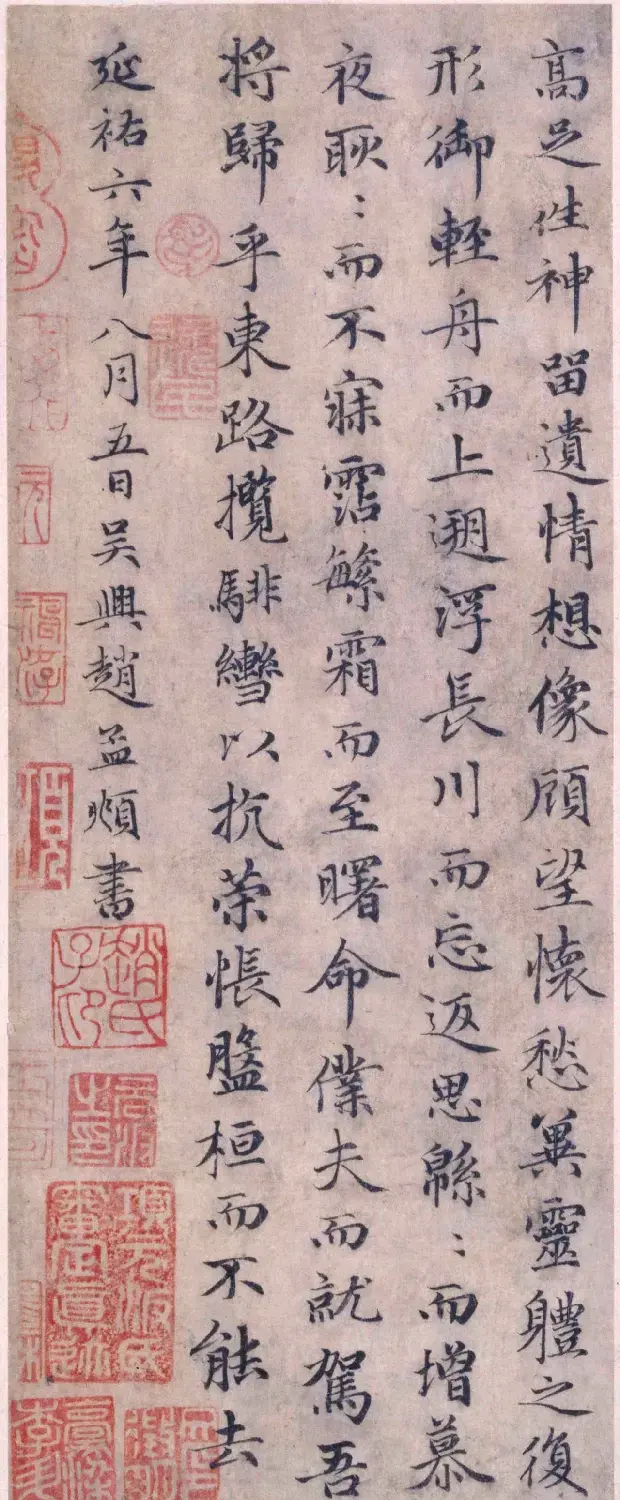 高足往神留遺情想像顧望懷愁冀靈軆之復
形御輕舟而上遡浮長川而忘返思緜〻而增慕
夜耿〻而不寐霑繁霜而至曙命僕夫而就駕吾
將歸乎東路攬騑轡以抗策悵盤桓而不能去
延祐六年八月五日吳興趙孟頫書
趙氏子印
項元汴氏審定真跡